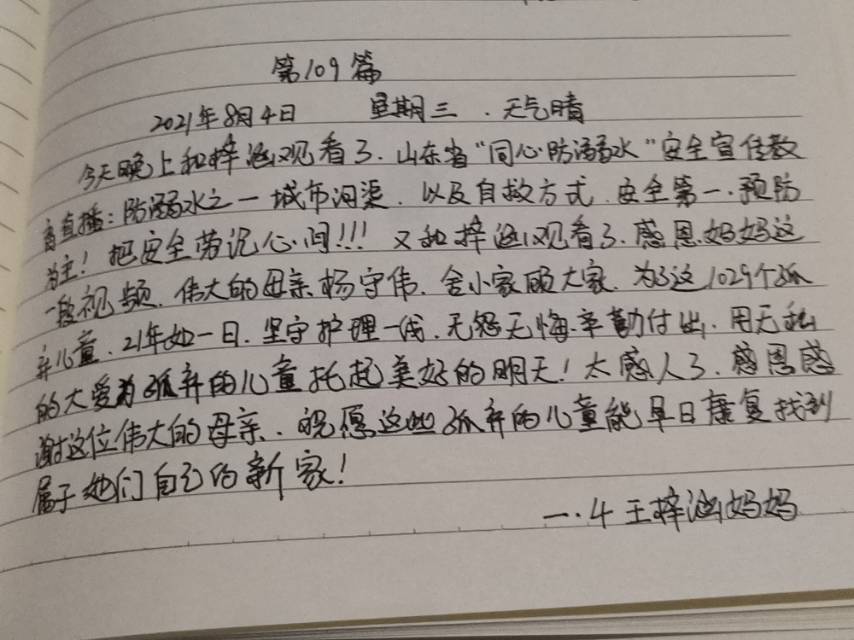 第109篇
2021年8月4日 星期三 . 天气晴
今天晚上和梓涵观看了. 山东省"同心防溺水"安全宣传教
育直播: 防溺水之一城市沟渠. 以及自救方式. 安全第一. 预防
为主! 把安全劳记心间!!! 又和梓涵观看了. 感恩妈妈这
一段视频. 伟大的母亲杨守伟. 舍小家顾大家. 为了这1029个孤
弃儿童. 21年如一日. 坚守护理一线. 无怨无悔辛勤付出. 用无私
的大爱为孤弃的儿童托起美好的明天! 太感人了. 感恩感
谢这位伟大的母亲. 祝愿这些孤弃的儿童能早日康复找到
属于她们自己的新家!
一.4 王梓涵妈妈